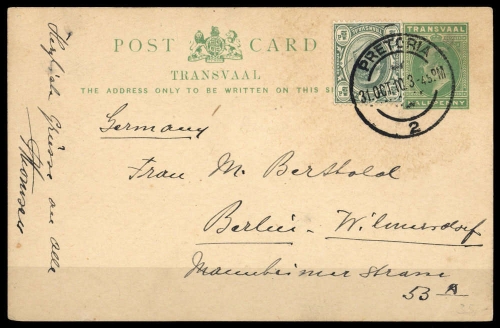 POST CARD
TRANSVAAL
THE ADDRESS ONLY TO BE WRITTEN ON THIS SI
TRANSVAAL
HALFPENNY
PRETORIA
31 OCT 10. 3-45PM
2
Germany
Frau M. Berthold
Berlin-Wilmersdorf
Mannheimer Strasse
53 A
Herzliche Grüsse an alle